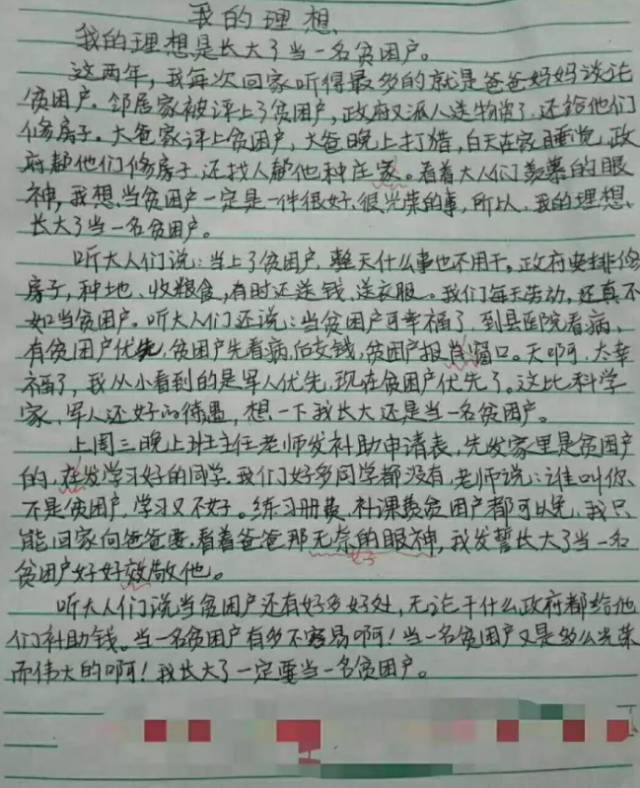 我的理想
我的理想是长大了当一名贫困户。
这两年，我每次回家听得最多的就是爸爸妈妈谈论
贫困户。邻居家被评上了贫困户，政府又派人送物资了，还给他们
修房子。大爸家评上贫困户，大爸晚上打猎，白天在家睡觉，政
府帮他们修房子，还找人帮他种庄家。看着大人们羡慕的眼
神，我想，当贫困户一定是一件很好、很光荣的事，所以，我的理想、
长大了当一名贫困户。
听大人们说：当上了贫困户，整天什么事也不用干。政府安排修
房子，种地、收粮食，有时还送钱、送衣服。我们每天劳动，还真不
如当贫困户。听大人们还说：当贫困户可幸福了，到县医院看病，
有贫困户优先，贫困户先看病，后交钱，贫困户报肖窗口。天啊，太幸
福了，我从小看到的是军人优先，现在贫困户优先了。这比科学
家，军人还好的待遇，想一下我长大还是当一名贫困户。
上周三晚上班主任老师发补助申请表，先发家里是贫困户
的，在发学习好的同学。我们好多同学都没有，老师说：谁叫你
不是贫困户，学习又不好。练习册费，补课费贫困户都可以免，我只
能回家向爸爸要，看着爸爸那无奈的眼神，我发誓长大了当一名
贫困户好好效敬他。
听大人们说当贫困户还有好多好处，无论干什么政府都给他
们补助钱。当一名贫困户有多不容易啊！当一名贫困户又是多么光荣
而伟大的啊！我长大了一定要当一名贫困户。